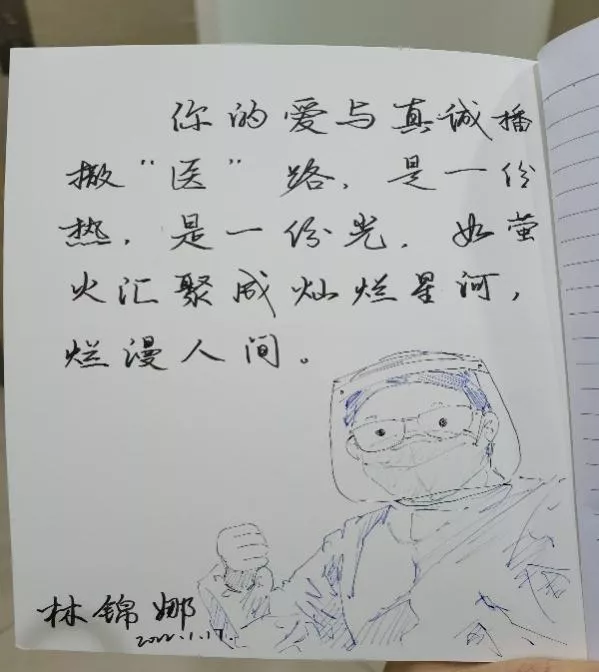 你的爱与真诚播
撒“医”路，是一份
热，是一份光，如萤
火汇聚成灿烂星河，
烂漫人间。
林锦娜
2022.1.17.